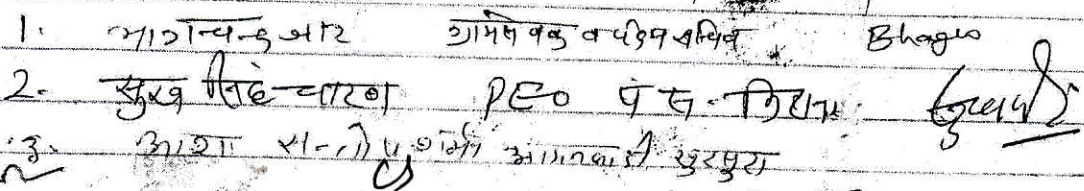 1. भागचन्द जाट ग्रामसेवक व पदेन सचिव Bhagu
2. सुख सिंह चारण PEO पं स.
3. आशा सन्तोष शर्मा आंगनबाडी सुरपुरा